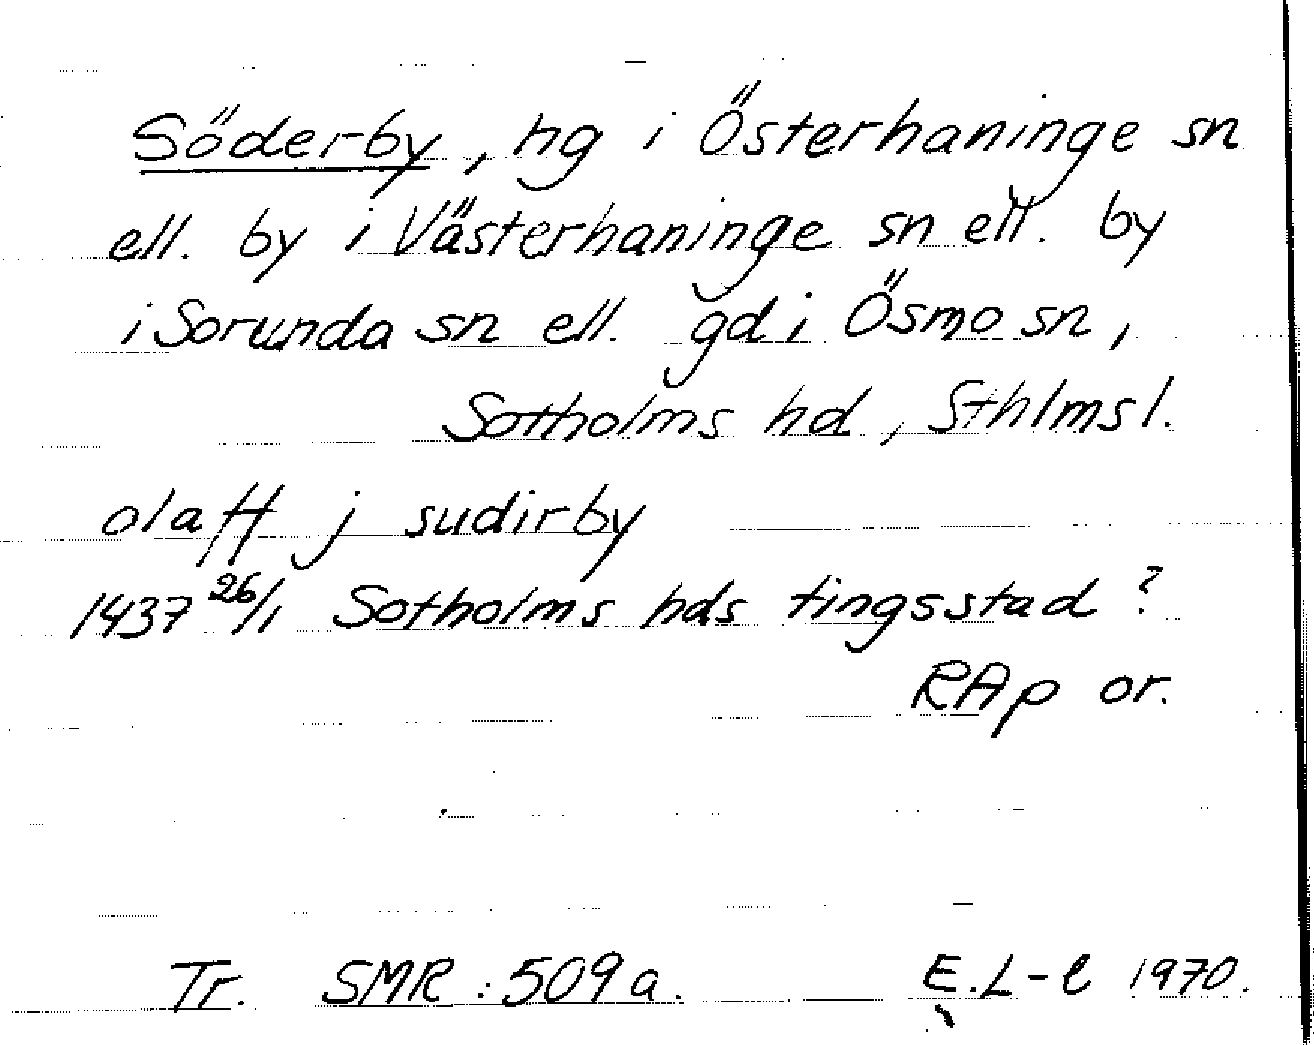 Söderby, hg i Österhaninge sn
ell. by i Västerhaninge sn ell. by
i Sorunda sn ell. gd i Ösmo sn,
Sotholms hd, Sthlmsl.
olaff j sudirby
1437 26/1 Sotholms hds tingsstad?
RAp or.
Tr. SMR: 509a. E.L-l 1970.